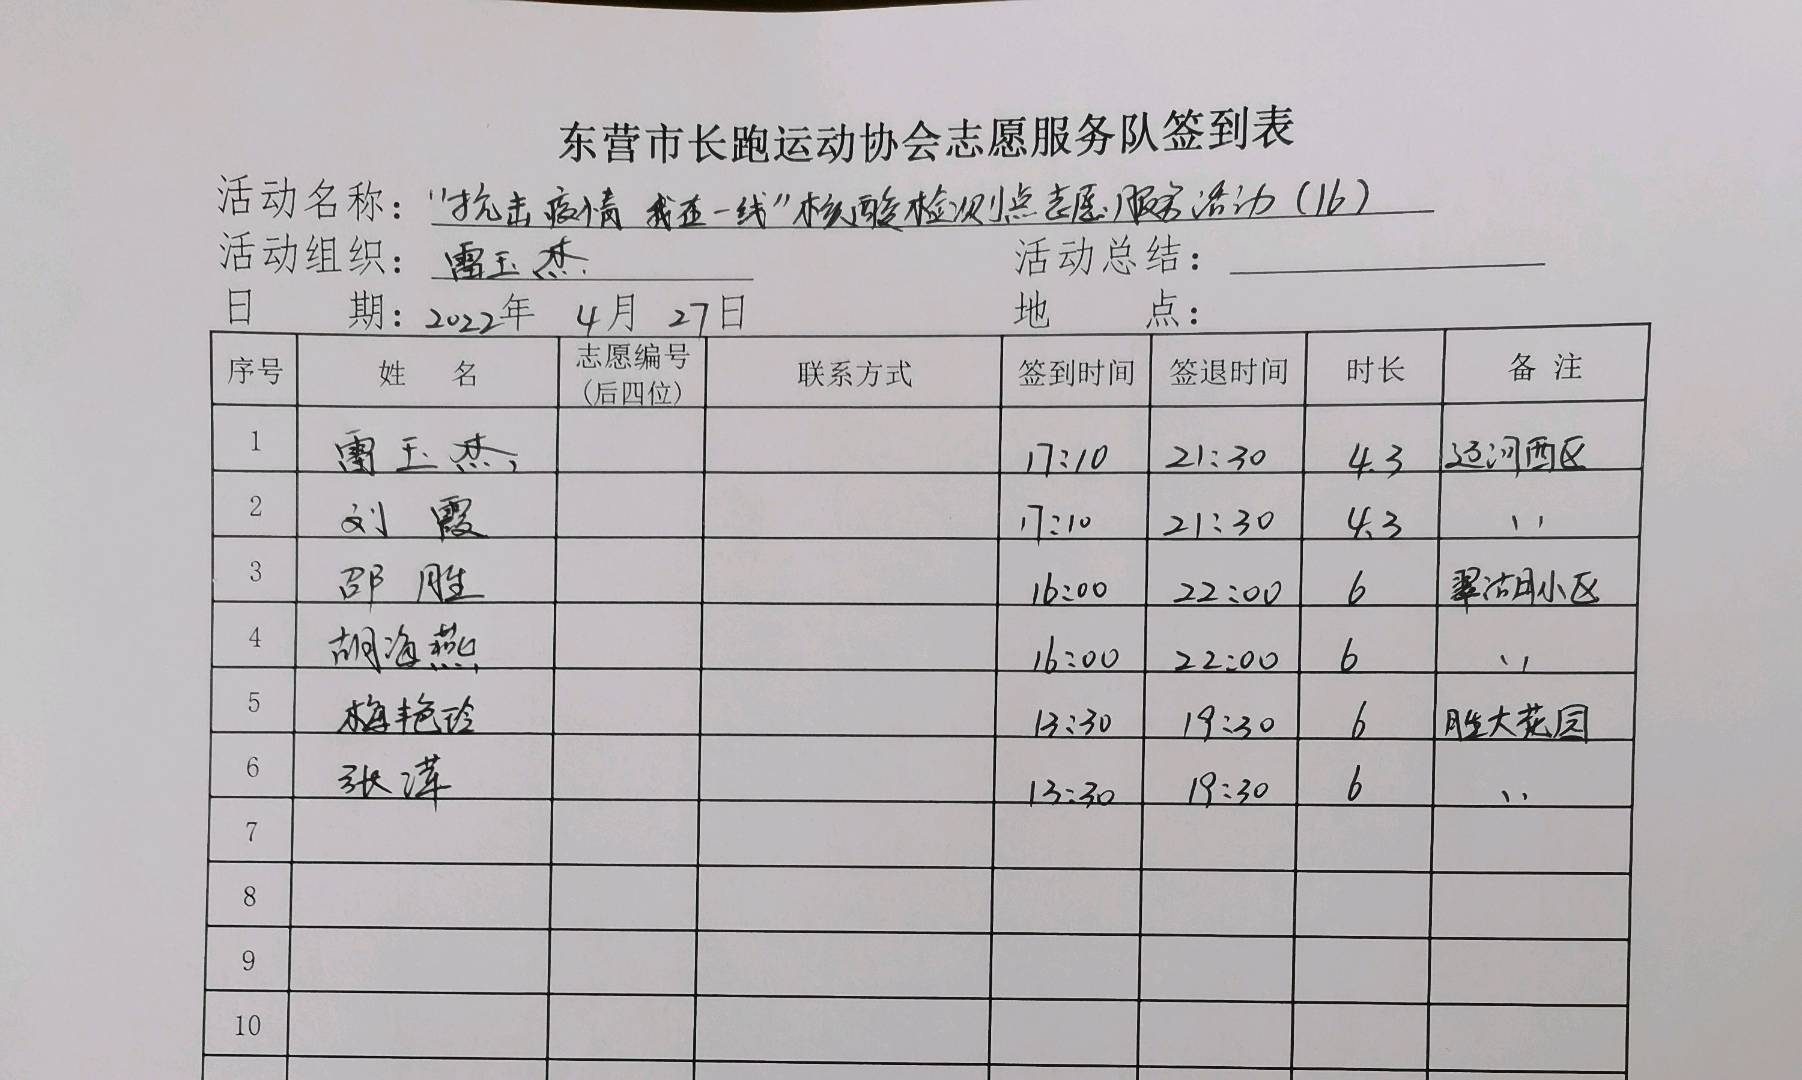 东营市长跑运动协会志愿服务队签到表
活动名称："抗击疫情 我在一线"核酸检测点志愿服务活动(16)
活动组织：雷玉杰 活动总结：
日 期：2022年 4月 27日 地 点：
序号 姓 名 志愿编号(后四位) 联系方式 签到时间 签退时间 时长 备 注
1 雷玉杰 17:10 21:30 4.3 运河西区
2 刘霞 17:10 21:30 4.3 〃
3 邵胜 16:00 22:00 6 翠湖小区
4 胡海燕 16:00 22:00 6 〃
5 梅艳玲 13:30 19:30 6 胜大花园
6 张萍 13:30 19:30 6 〃
7
8
9
10